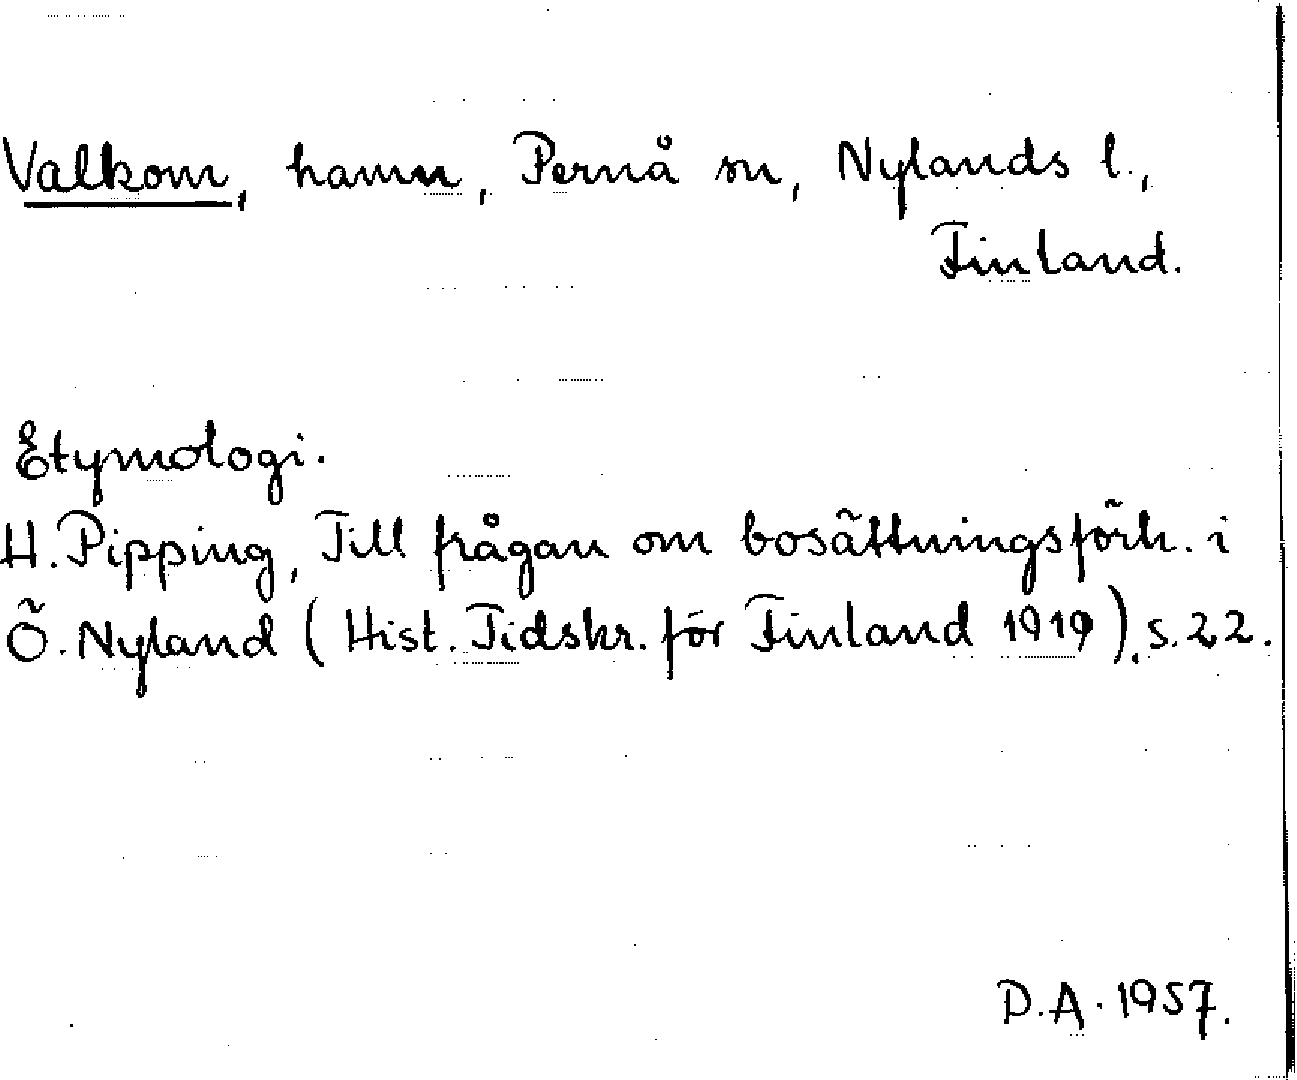 Valkom, hamn, Pernå sn, Nylands l.,
Finland.
Etymologi.
H. Pipping, Till frågan om bosättningsförh. i
Ö. Nyland (Hist. Tidskr. för Finland 1919), s. 22.
D.A. 1957.